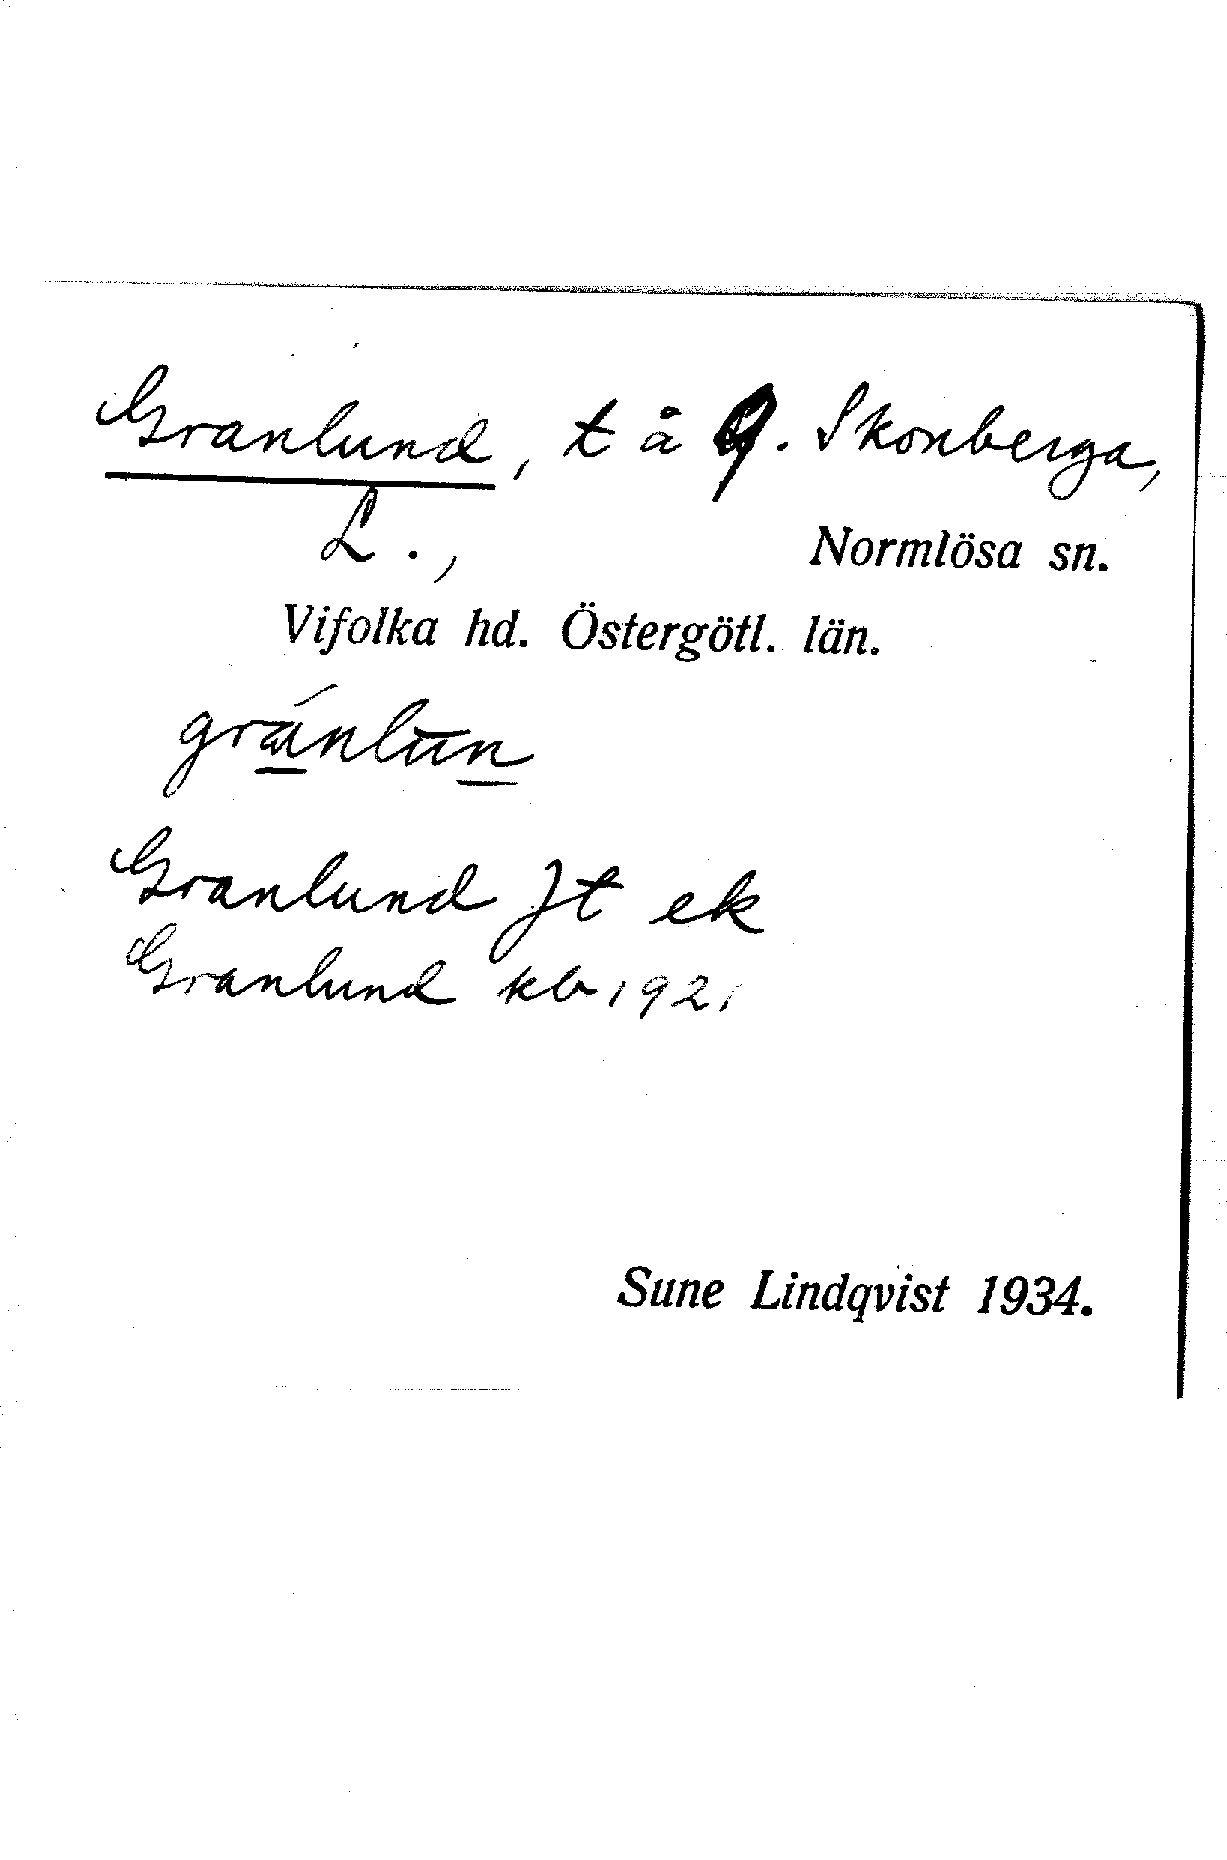 Granlund, t å 9. Skonberga,
L., Normlösa sn.
Vifolka hd. Östergötl. län.
gránlun
Granlund Jt ek
Granlund kb 1921
Sune Lindqvist 1934.